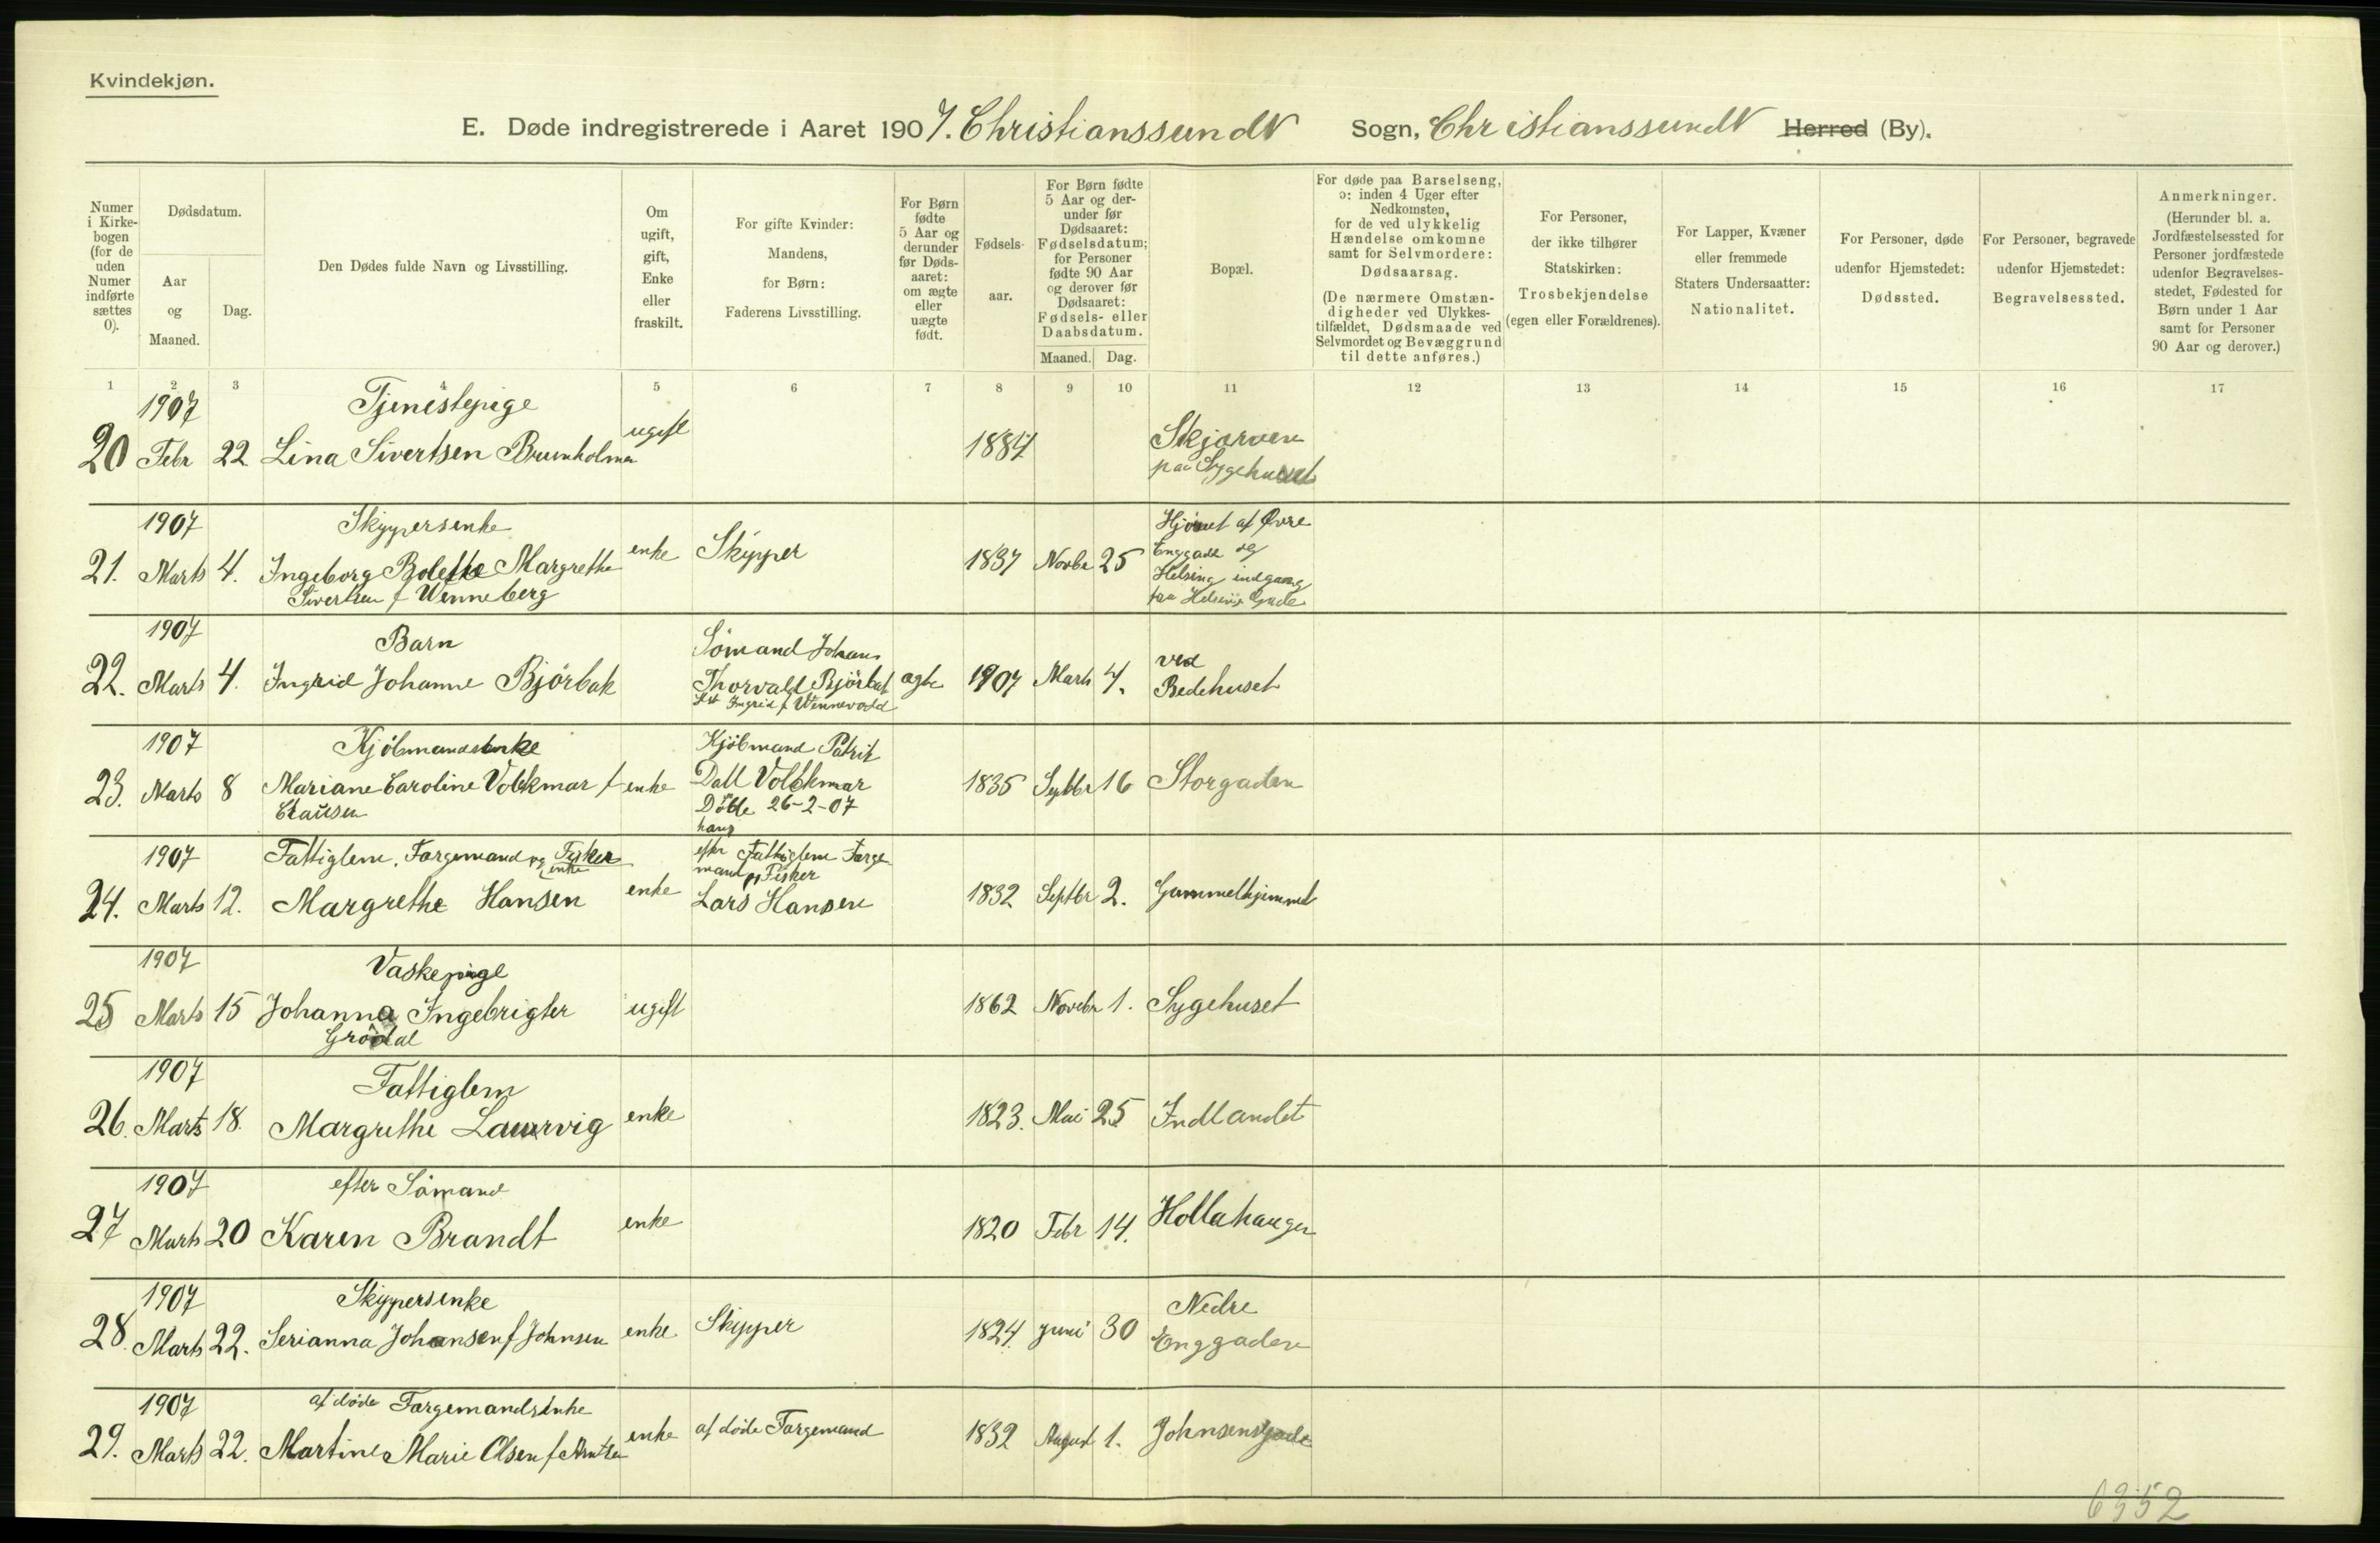 Kvindekjøn.
E. Døde indregistrerede i Aaret 1907. Christianssund N Sogn, Christianssund N Herred (By).
Numer i Kirkebogen (for de uden Numer indførte sættes 0).
Dødsdatum.
Aar og Maaned.
Dag.
Den Dødes fulde Navn og Livsstilling.
Om ugift, gift, Enke eller fraskilt.
For gifte Kvinder: Mandens, for Børn: Faderens Livsstilling.
For Børn fødte 5 Aar og derunder før Dødsaaret: om ægte eller uægte født.
Fødselsaar.
For Børn fødte 5 Aar og derunder før Dødsaaret: Fødselsdatum; for Personer fødte 90 Aar og derover før Dødsaaret: Fødsels- eller Daabsdatum.
Maaned. Dag.
Bopæl.
For døde paa Barselseng, ɔ: inden 4 Uger efter Nedkomsten, for de ved ulykkelig Hændelse omkomne samt for Selvmordere: Dødsaarsag.
(De nærmere Omstændigheder ved Ulykkestilfældet, Dødsmaade ved Selvmordet og Bevæggrund til dette anføres.)
For Personer, der ikke tilhører Statskirken: Trosbekjendelse (egen eller Forældrenes).
For Lapper, Kvæner eller fremmede Staters Undersaatter: Nationalitet.
For Personer, døde udenfor Hjemstedet: Dødssted.
For Personer, begravede udenfor Hjemstedet: Begravelsessted.
Anmerkninger.
(Herunder bl. a. Jordfæstelsessted for Personer jordfæstede udenfor Begravelsesstedet, Fødested for Børn under 1 Aar samt for Personer 90 Aar og derover.)
1 2 3 4 5 6 7 8 9 10 11 12 13 14 15 16 17
1907 Tjenestepige
20 Febr 22 Lina Sivertsen Brunholmen ugift 1884 Skjærven
paa Sygehuset
1907 Skyppersenke Hjörnet af Øvre
21. Marts 4. Ingeborg Bolette Margrethe enke Skypper 1837 Novbr 25 Enggade og
Sivertsen f Wenneberg Helsing indgang
fra Helsings Gade
1907 Barn Sömand Johan
22. Marts 4. Ingrid Johanne Björbak Thorvald Björbak ægte 1907 Marts 4. ved
Ingrid f Wennevold Bedehuset
1907 Kjöbmandsenke Kjöbmand Patrik
23. Marts 8 Mariane Caroline Volckmar f enke Dall Volckmar 1835 Septbr 16 Storgaden
Clausen Döde 26-2-07
hans
1907 Fattiglem, Færgemand og Fisker efter Fattiglem Færge
enke mand og Fisker
24. Marts 12. Margrethe Hansen enke Lars Hansen 1832 Septbr 2. Gammelhjemmet
1907 Vaskepige
25 Marts 15 Johanna Ingebrigter ugift 1862 Novebr 1. Sygehuset
Grödal
1907 Fattiglem
26. Marts 18. Margrethe Laurvig enke 1823. Mai 25 Indlandet
1907 efter Sömand
27 Marts 20 Karen Brandt enke 1820 Febr 14. Hollahaugen
1907 Skyppersenke Nedre
28. Marts 22. Serianna Johansen f Johnsen enke Skypper 1824. juni 30 Enggaden
1907 afdöde Færgemandsenke
29. Marts 22. Martine Marie Olsen f Arntsen enke afdöde Færgemand 1832 August 1. Johnsensgade
6352